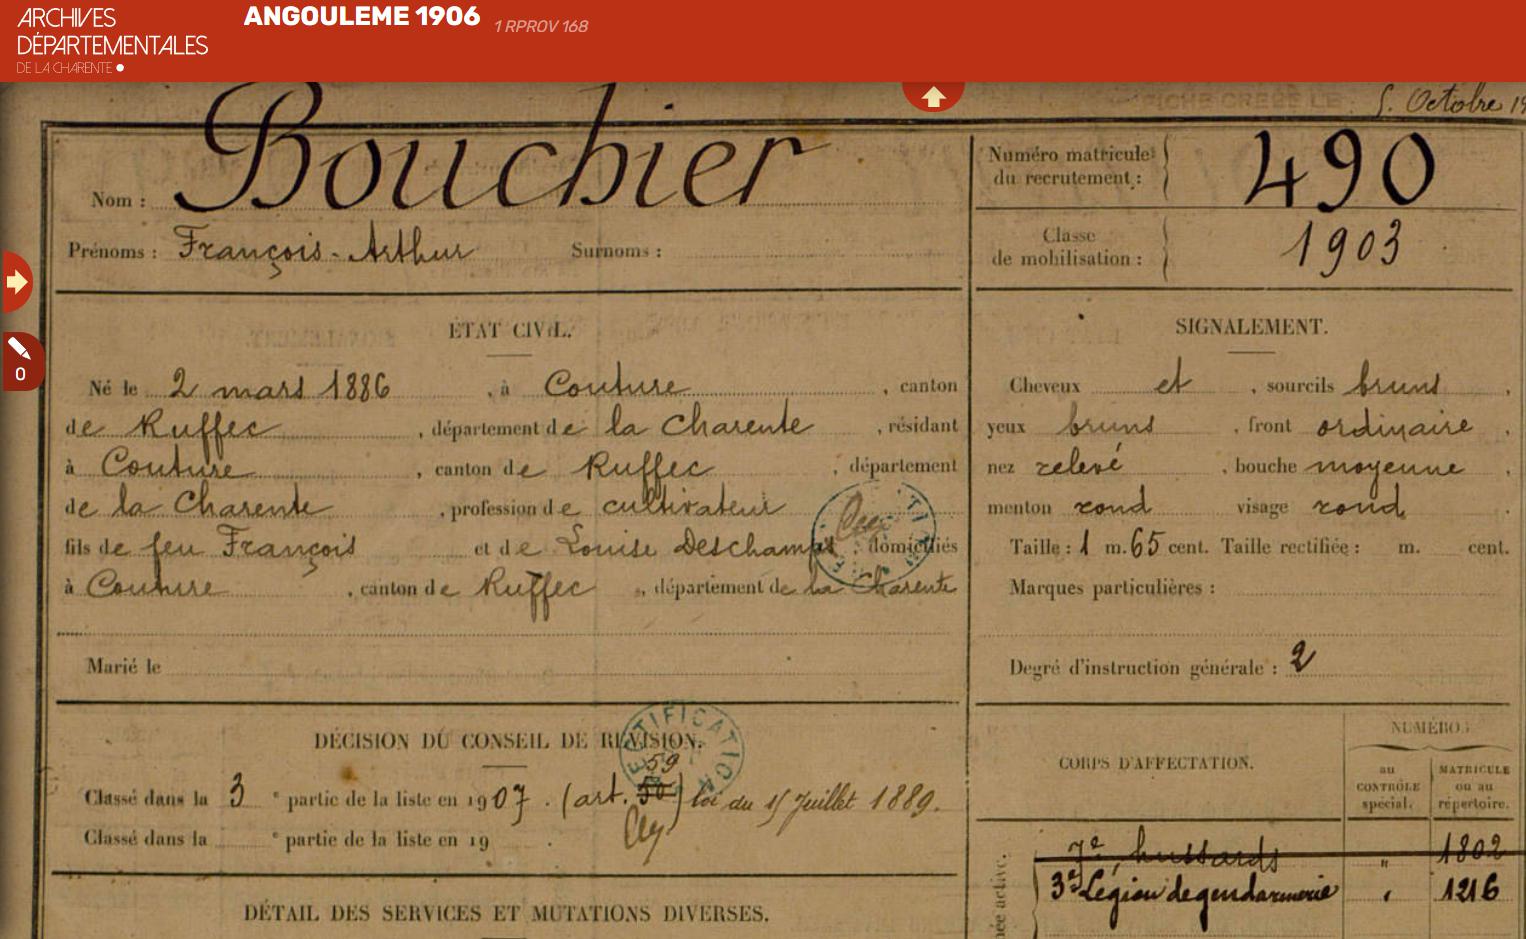 ARCHIVES
DÉPARTEMENTALES
DE LA CHARENTE
ANGOULEME 1906
1 RPROV 168
FICHE CRÉÉE LE 5 Octobre 19
Nom : Bouchier
Prénoms : François-Arthur Surnoms :
Numéro matricule du recrutement : 490
Classe de mobilisation : 1903
0
ÉTAT CIVIL.
Né le 2 mars 1886, à Couture, canton
de Ruffec, département de la Charente, résidant
à Couture, canton de Ruffec, département
de la Charente, profession de cultivateur
fils de feu François et de Louise Deschamps domiciliés
à Couture, canton de Ruffec, département de la Charente
Marié le
SIGNALEMENT.
Cheveux et, sourcils bruns,
yeux bruns, front ordinaire,
nez relevé, bouche moyenne,
menton rond visage rond
Taille : 1 m. 65 cent. Taille rectifiée : m. cent.
Marques particulières :
Degré d'instruction générale : 2
DÉCISION DU CONSEIL DE RÉVISION.
RECTIFICATION
59
Classé dans la 3e partie de la liste en 1907. (art. 50) loi du 15 Juillet 1889.
Classé dans la e partie de la liste en 19 .
DÉTAIL DES SERVICES ET MUTATIONS DIVERSES.
CORPS D'AFFECTATION.
NUMÉROS
au CONTRÔLE spécial.
MATRICULE ou au répertoire.
7e hussards " 1802
3e Légion de gendarmerie " 1216